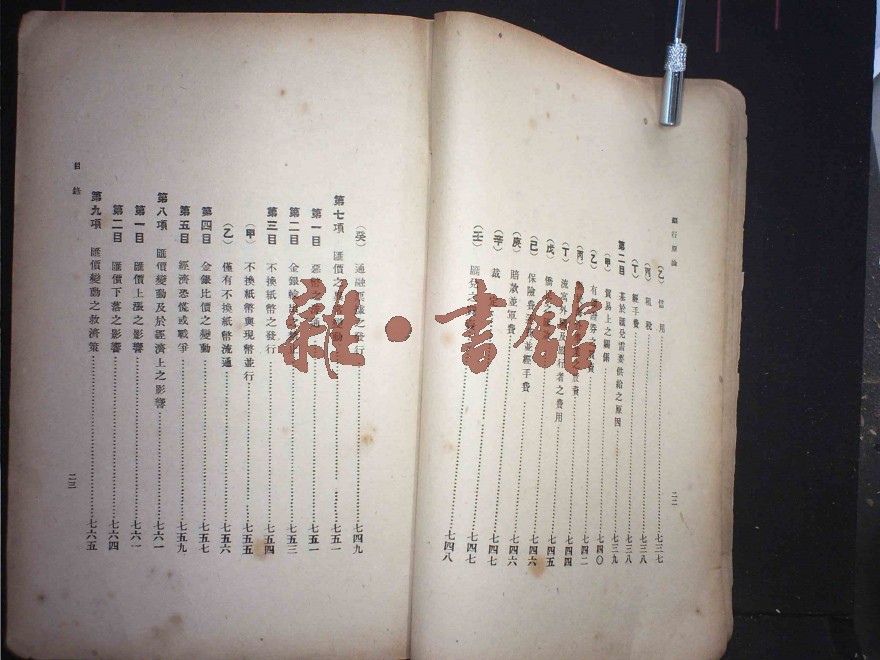 銀行原論
(乙) 信用……七三七
(丙) 租稅……七三八
(丁) 經手費……七三八
第二目 基於匯兌需要供給之原因……七三九
(甲) 貿易上之關係……七四〇
(乙) 有價證券之賣買……七四二
(丙)
(丁) 流寓外國及旅行者之費用……七四四
(戊) 僑……七四五
(己) 保險費並經手費……七四六
(庚) 賠款並軍費……七四六
(辛) 裁……七四七
(壬) 匯兌之……七四八
二二
(癸) 通融匯票之發行……七四九
第七項 匯價之變動……七五一
第一目 惡幣之流通……七五一
第二目 金銀輸出……七五三
第三目 不換紙幣之發行……七五四
(甲) 不換紙幣與現幣並行……七五五
(乙) 僅有不換紙幣流通……七五六
第四目 金銀比價之變動……七五七
第五目 經濟恐慌或戰爭……七五九
第八項 匯價變動及於經濟上之影響……七六一
第一目 匯價上漲之影響……七六一
第二目 匯價下落之影響……七六四
第九項 匯價變動之救濟策……七六五
目錄
二三
雜·書館